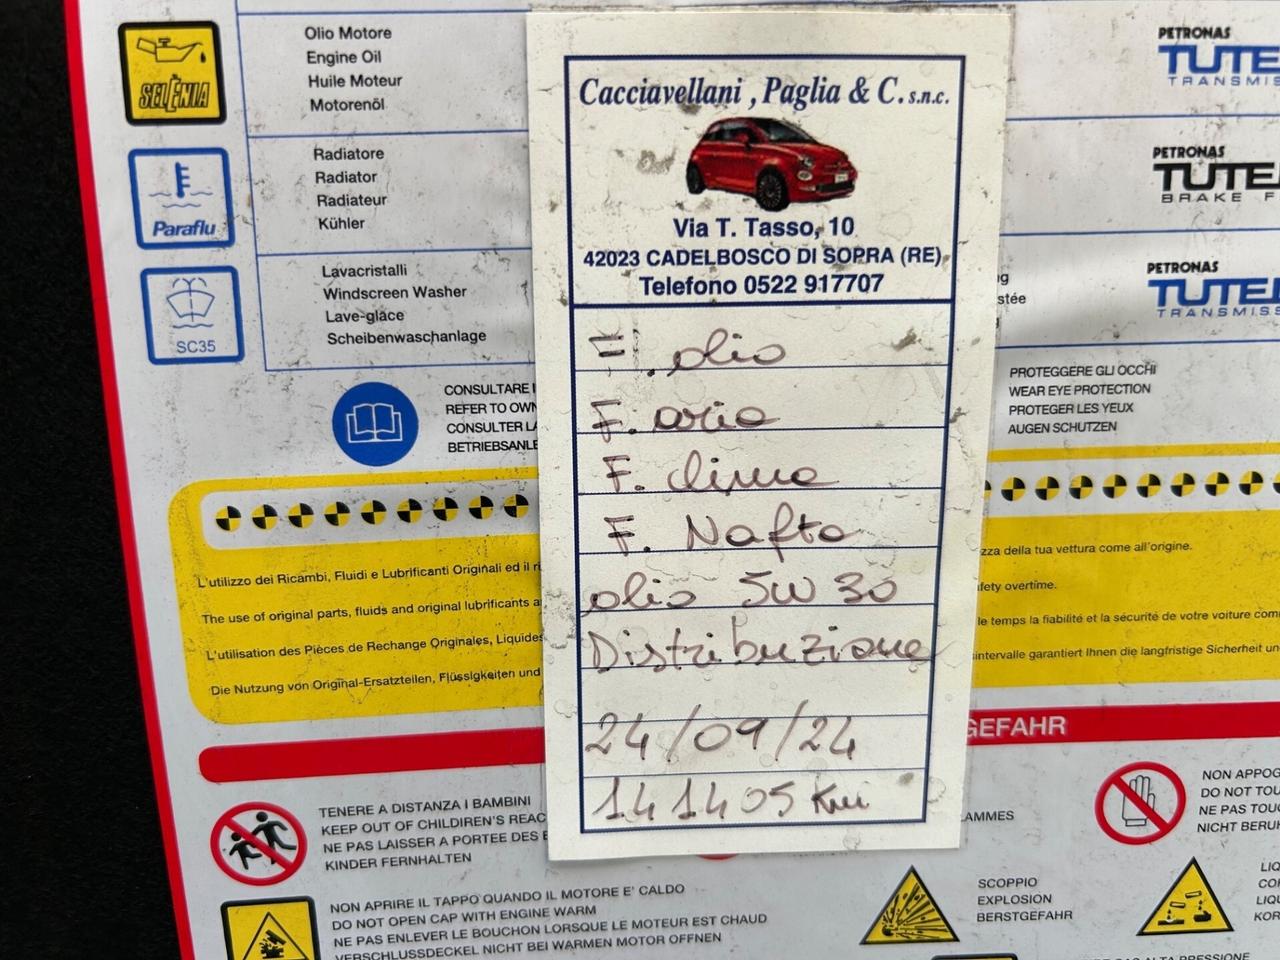 SELÈNIA
Olio Motore
Engine Oil
Huile Moteur
Motorenöl
Paraflu
Radiatore
Radiator
Radiateur
Kühler
SC35
Lavacristalli
Windscreen Washer
Lave-glace
Scheibenwaschanlage
CONSULTARE
REFER TO
CONSULTER
L'utilizzo dei Ricambi, Fluidi e Lubrificanti Originali ed il
The use of original parts, fluids and original lubrificants
L'utilisation des Pièces de Rechange Originales, Liquides
Die Nutzung von Original-Ersatzteilen, Flüssigkeiten und
Cacciavellani , Paglia & C. s.n.c.
Via T. Tasso, 10
42023 CADELBOSCO DI SOPRA (RE)
Telefono 0522 917707
F. olio
F. aria
F. clima
F. Nafta
olio 5W 30
Distribuzione
24/09/24
141405 Km
PETRONAS
PETRONAS
PETRONAS
PROTEGGERE GLI OCCHI
WEAR EYE PROTECTION
PROTEGER LES YEUX
AUGEN SCHUTZEN
della tua vettura come all'origine.
overtime.
le temps la fiabilité et la sécurité de votre voiture
garantiert Ihnen die langfristige Sicherheit
GEFAHR
TENERE A DISTANZA I BAMBINI
KEEP OUT OF CHILDREN'S
NE PAS LAISSER A PORTEE DES
KINDER FERNHALTEN
NON APRIRE IL TAPPO QUANDO IL MOTORE E' CALDO
DO NOT OPEN CAP WITH ENGINE WARM
NE PAS ENLEVER LE BOUCHON LORSQUE LE MOTEUR EST CHAUD
VERSCHLUSSDECKEL NICHT BEI WARMEN MOTOR OFFNEN
SCOPPIO
EXPLOSION
BERSTGEFAHR
NON
DO NOT
NE PAS
NICHT